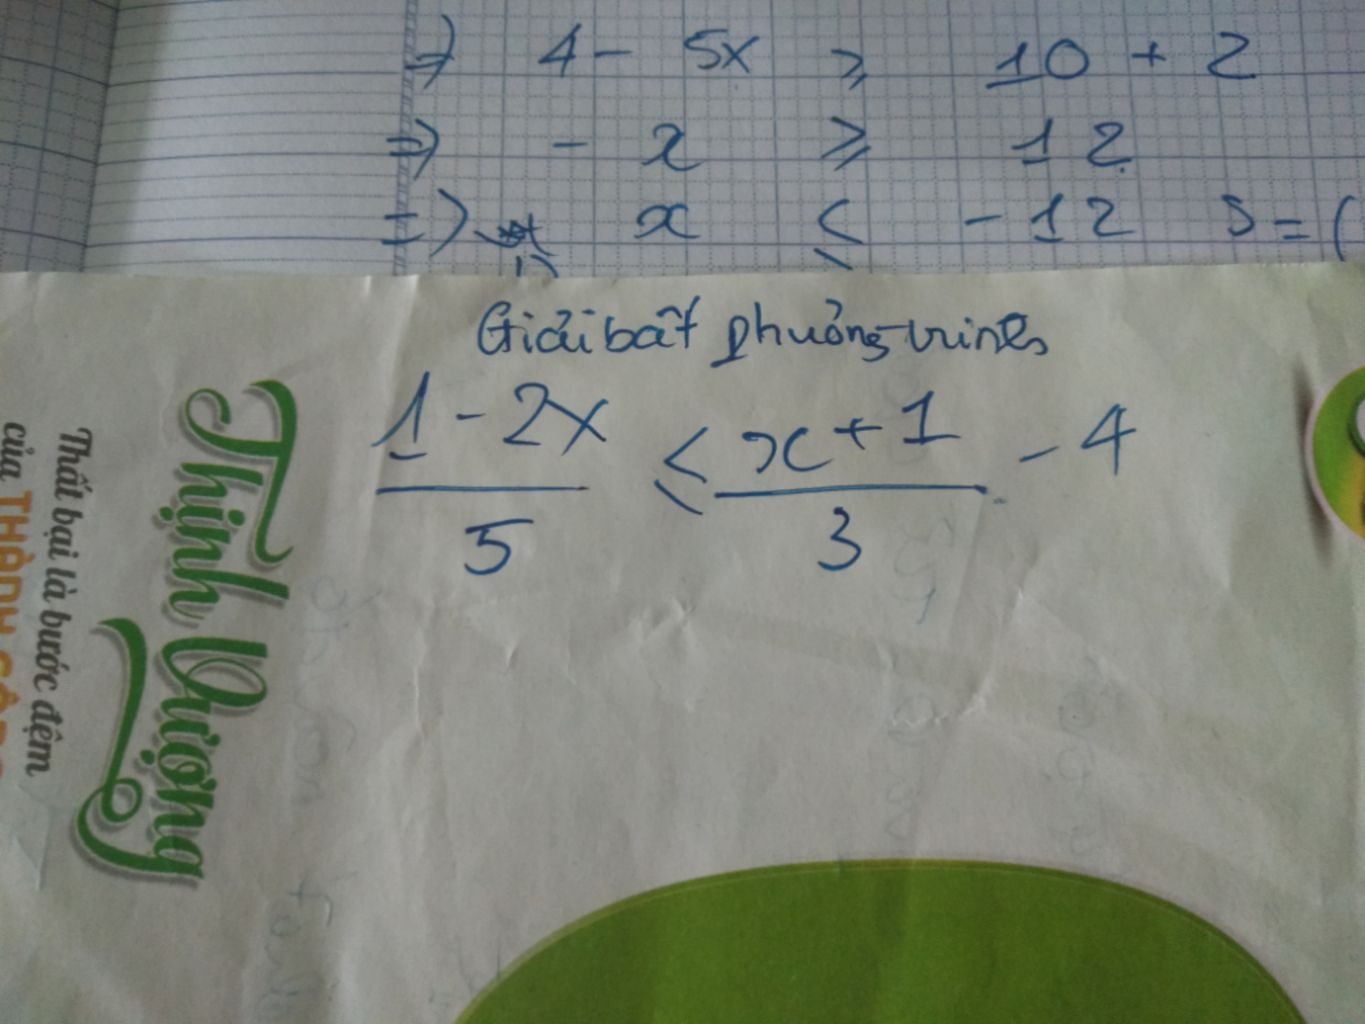 =) 4 - 5x ⩾ 10 + 2
=) - x ⩾ 12
=) x ⩽ - 12 S = (
Giải bất phương trình
1 - 2x / 5 ⩽ x + 1 / 3 - 4
Thịnh Vượng
Thất bại là bước đệm
của THÀNH CÔNG